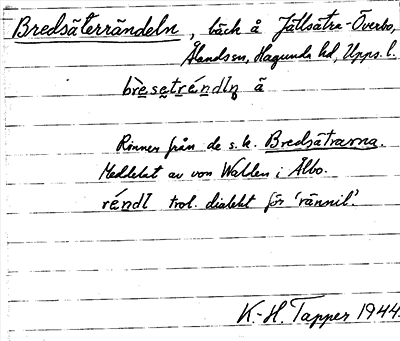 Bredsäterrändeln, bäck å Jällsätra-Överbo,
Ålands sn, Hagunda hd, Upps. l.
brèsetréndln ä
Rinner från de s.k. Bredsätrarna.
Meddelat av von Walden i Ålbo.
réndl trol. dialekt för 'rännil'.
K.-H. Tapper 1944.